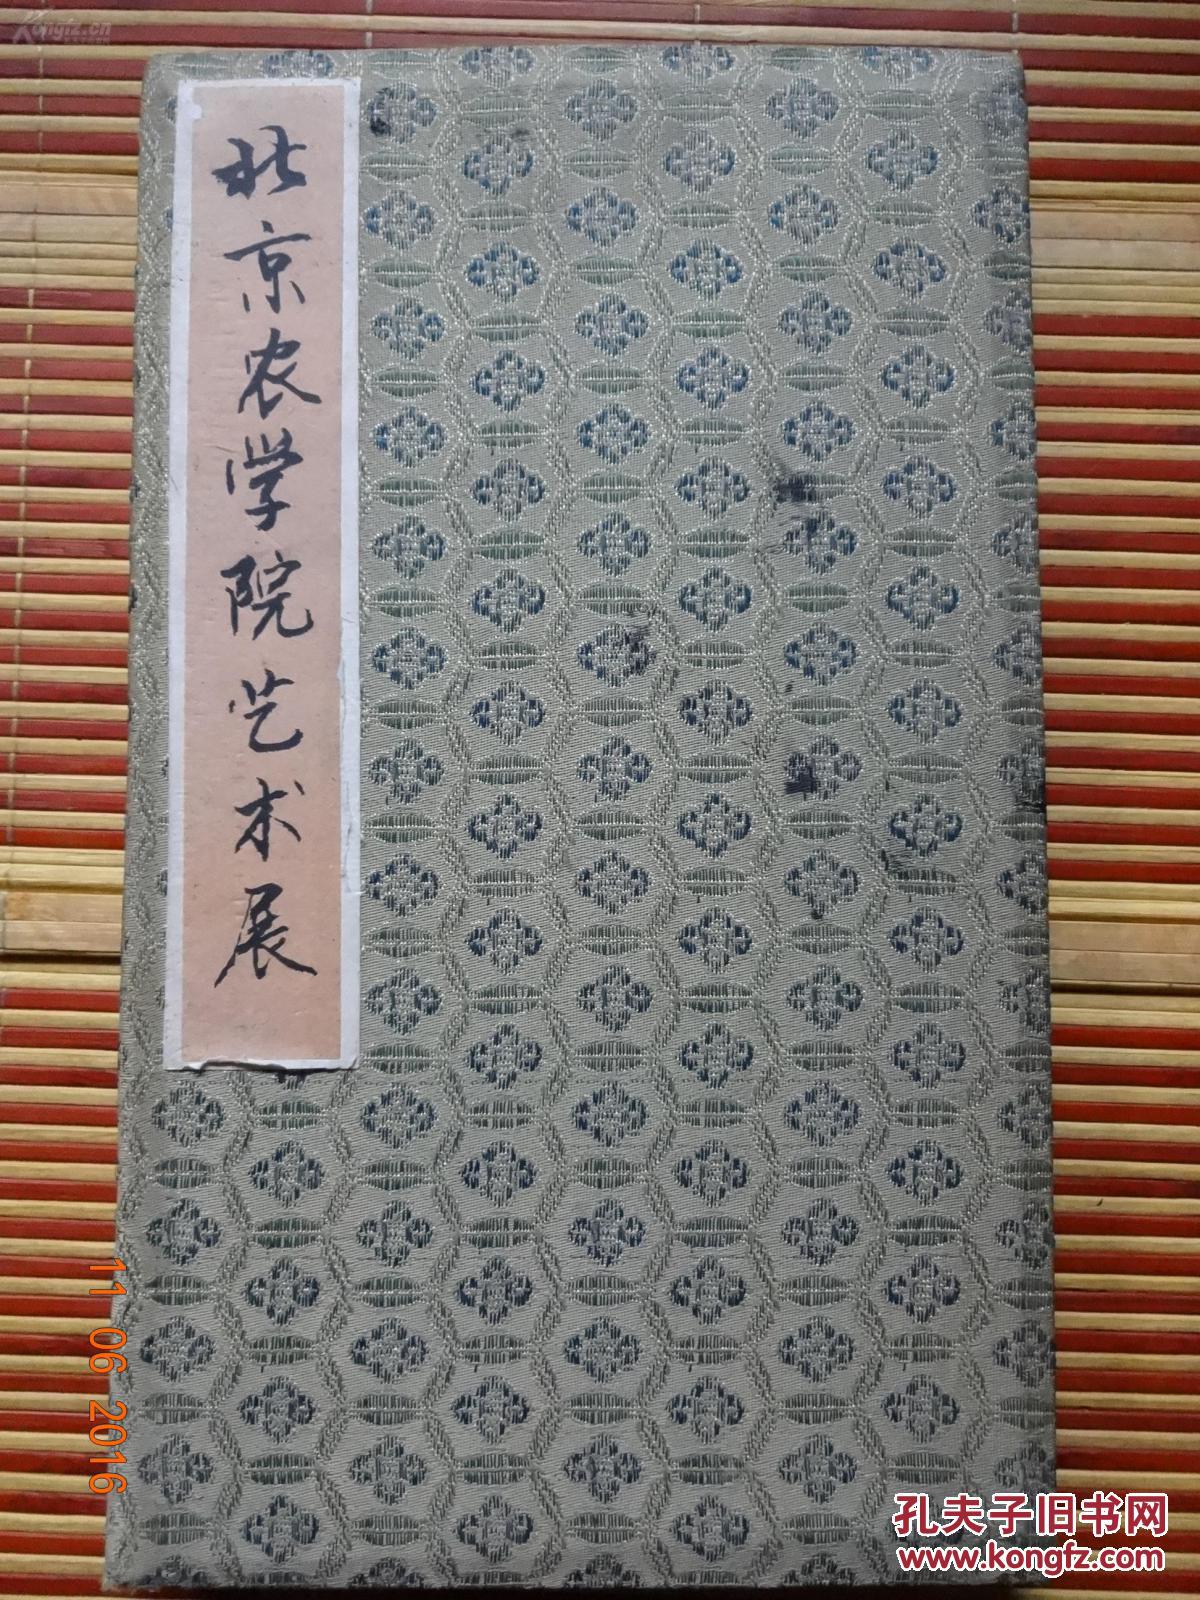 Kongfz.cn
北京农学院艺术展
11 06 2016
孔夫子旧书网
www.kongfz.com